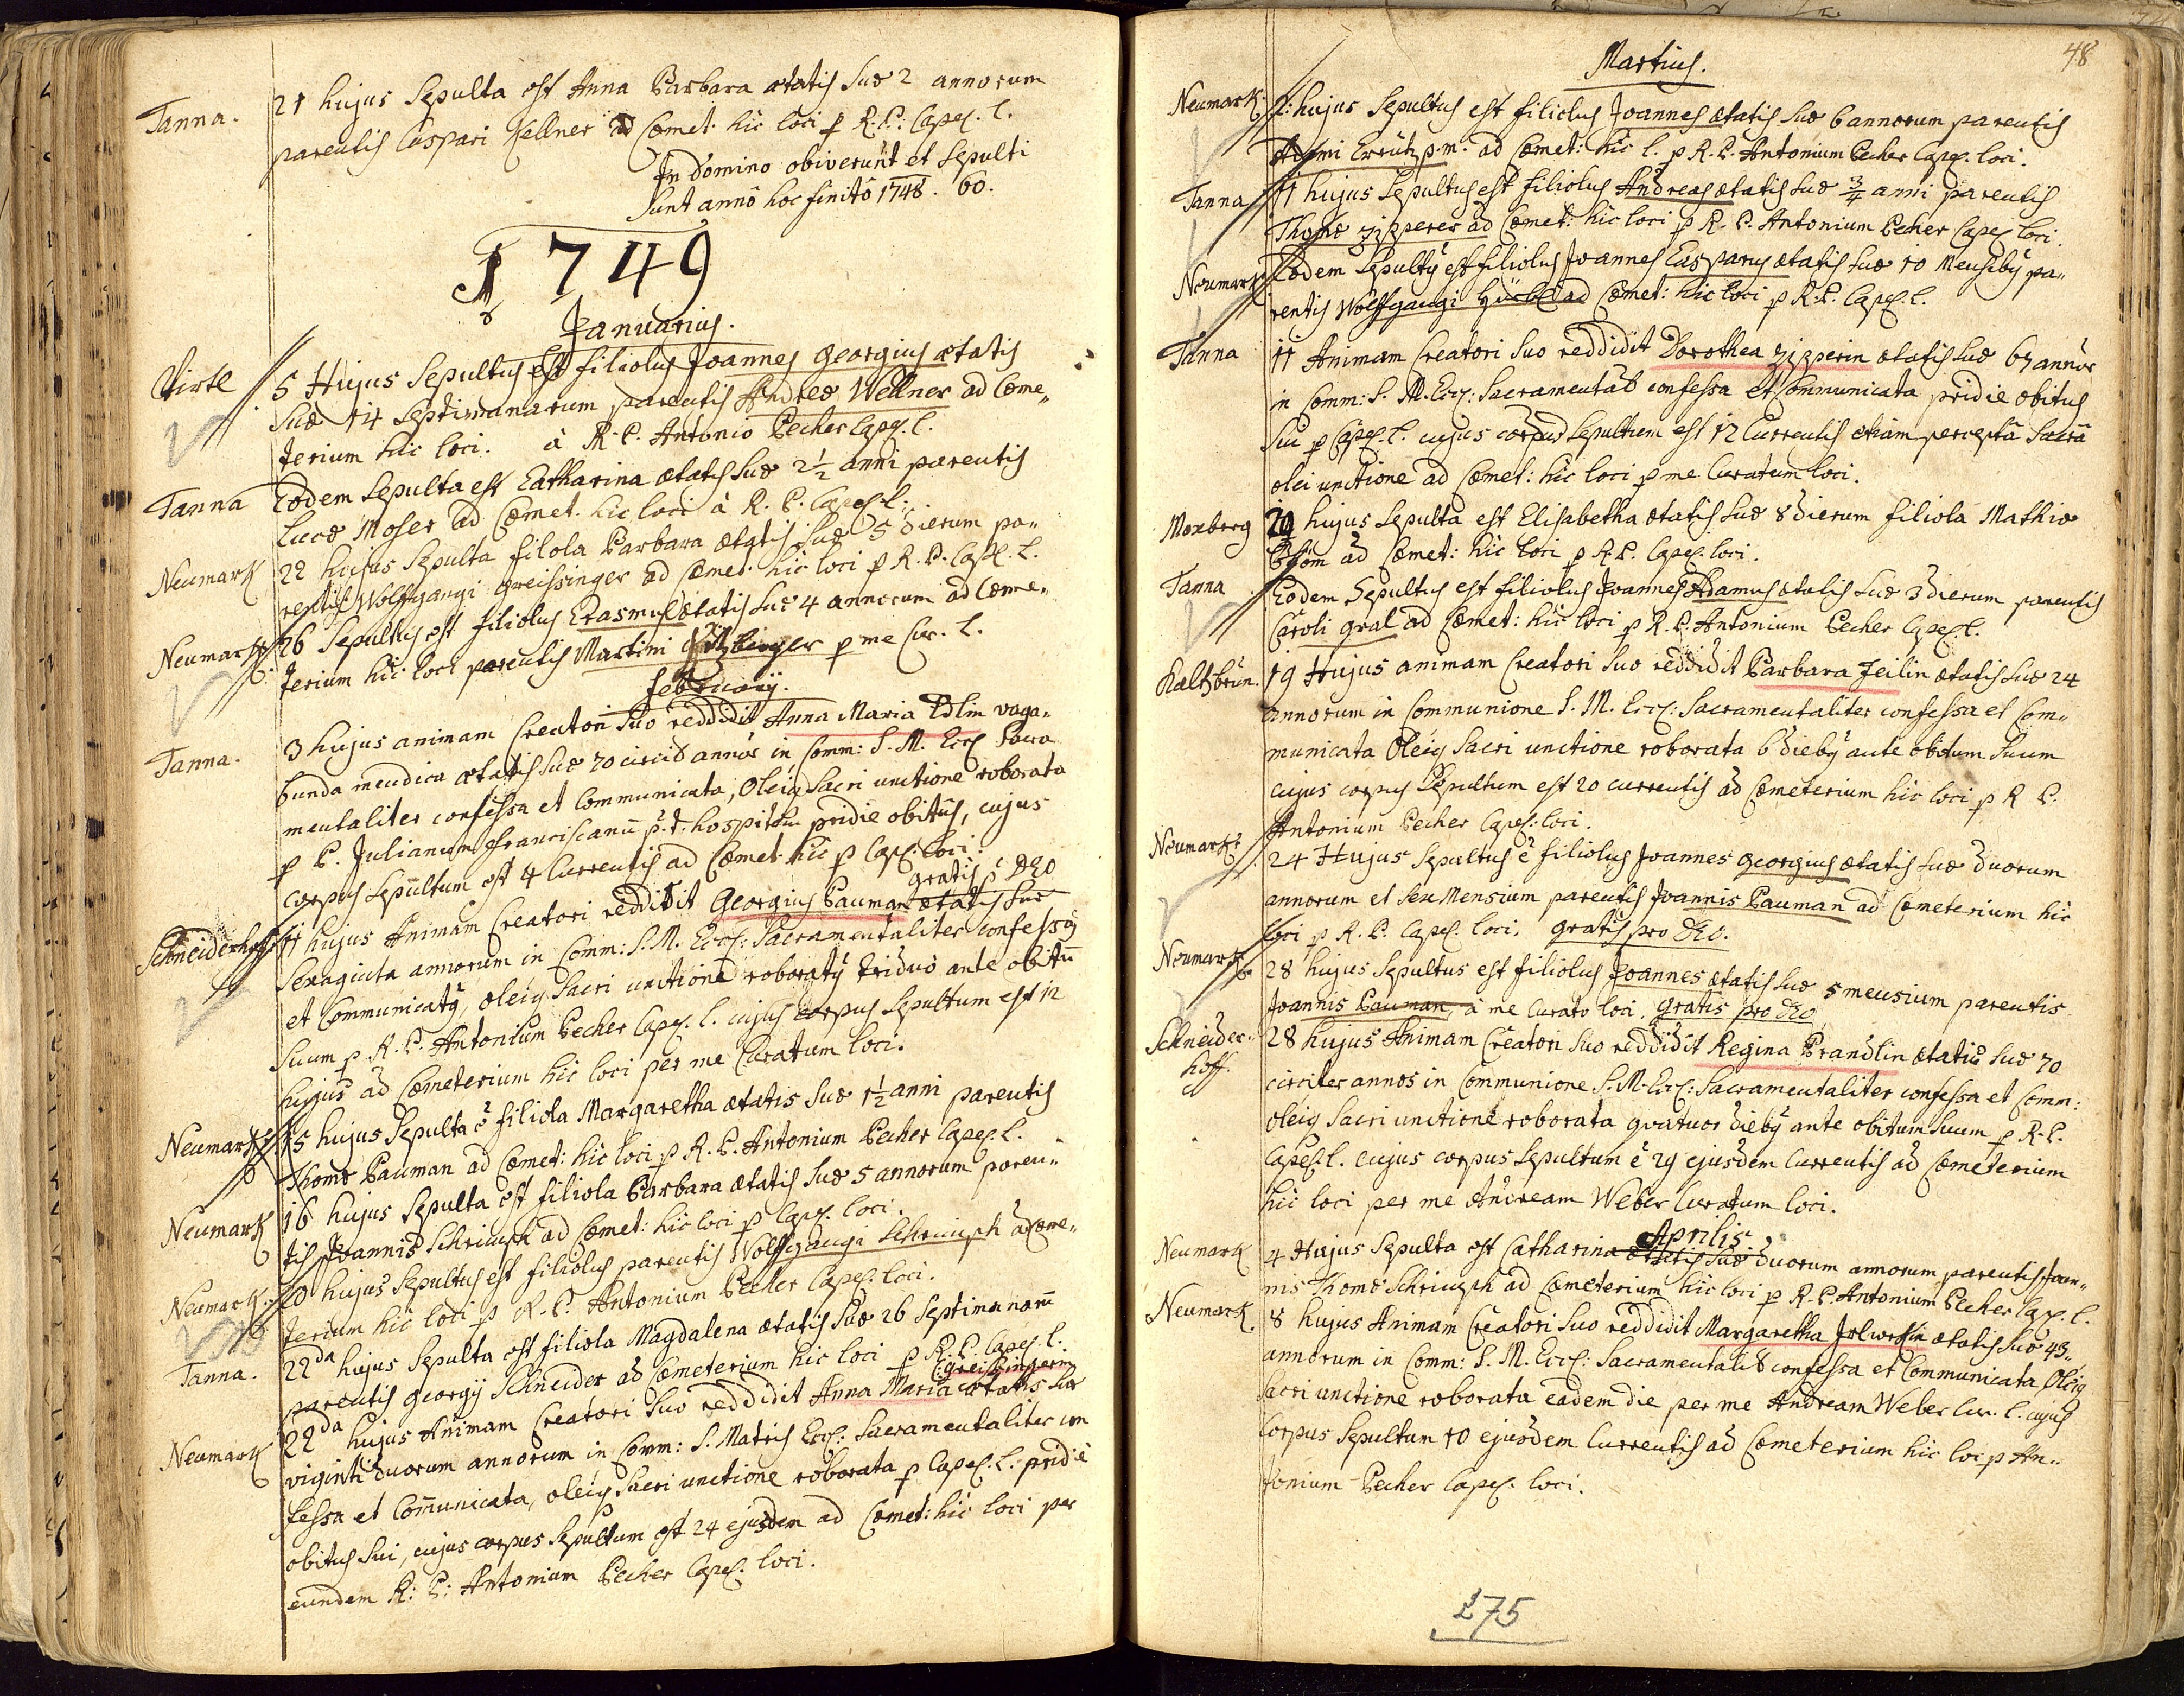 Tanna. 21 hujus sepulta est Anna Barbara ætatis suæ 2 annorum
parentis Caspari Kellner ad Cœmet. hic loci p R. P. Capel. l.
In domino obiverunt et sepulti
sunt annô hoc finitô 1748. 60.
1749
Januarius.
Virtl 5 Hujus Sepultus est filiolus Joannes Georgius ætatis
suæ 14 septimanarum parentis Andreæ Wellner ad Cœme„
terium hic loci. à R. P. Antonio Pecher Capel. l.
Tanna Eodem Sepulta est Catharina ætatis suæ 2½ anni parentis
Lucæ Moser ad Cœmet. hic loci à R. P. Capel. l.
Neumark 22 hujus Sepulta filola Barbara ætatis suæ 5 dierum pa„
rentis Wolffgangi Greissinger ad Cœmet. hic loci p R. P. Capel. L.
Neumark 26 Sepultus est filiolus Erasmus ætatis suæ 4 annorum ad Cœme„
terium hic loci parentis Martini p me Cur. L.
Februarij.
Tanna. 3 hujus animam Creatori suo reddidit Anna Maria Edlin vaga„
bunda mendica ætatis suæ 70 circid annor in Comm: S. M. Eccl Sacra
mentaliter confessa et Communicata, Oleiq Sacri unctione roborata
p P. Julianum Franciscanũ p. t. hospitem pridie obitus, cujus
corpus sepultum est 4 Currentis ad Cœmet. hic p Capel: loci.
gratis p DEO
Schneiderhoff 11 hujus Animam Creatori reddidit Georgius Pauman ætatis suæ
Sexaginta annorum in Comm: S. M. Eccl: Sacramentaliter confessq
et Communicatq, oleiq Sacri unctione roboratq triduo ante obitũ
suum p R. P. Antonium Pecher Capel. l. cujus corpus sepultum est 12
hujus ad Cœmeterium hic loci per me Curatum loci.
Neumark 15 hujus Sepulta ẽ filiola Margaretha ætatis suæ 1½ anni parentis
Thomæ Pauman ad Cœmet: hic loci p R. P. Antonium Pecher Capel. l.
Neumark 16 hujus Sepulta est filiola Barbara ætatis suæ 5 annorum paren„
tis Joannis Schrimph ad Cœmet: hic loci p Capel. loci.
Neumark. 20 hujus Sepultus est filiolus parentis Wolffgangi Schrimph ad Cœme„
terium hic loci p R. P. Antonium Pecher Capel. loci.
Tanna. 22da hujus Sepulta est filiola Magdalena ætatis suæ 26 septimanarũ
parentis Georgij Schneider ad Cœmeterium hic loci p R. P. Capel. l.
Greissingerin
Neumark 22da hujus Animam Creatori suo reddidit Anna Maria ætatis suæ
viginti duorum annorum in Comm: S. Matris Eccl: Sacramentaliter con
fessa et Com̃unicata, oleiq Sacri unctione roborata p Capel. L. pridie
obitus sui, cujus corpus sepultum est 24 ejusdem ad Cœmet: hic loci per
eundem R: P: Antonium Pecher Capel: loci.
48
Martius.
Neumark. hujus Sepultus est filiolus Joannes ætatis suæ 6 annorum parentis
p. m. ad Cœmet: hic l. p R. P. Antonium Pecher Capel. loci.
Tanna 11 hujus Sepultus est filiolus Andreas ætatis suæ ¾ anni parentis
Thomæ Zizperer ad Cœmet: hic loci p R. P. Antonium Pecher Capel loci.
Neumark Eodem Sepultq est filiolus Joannes Casparus ætatis suæ 10 Mensibq pa„
rentis Wolffgangi ad Cœmet: hic loci p R. P. Capel. l.
Tanna 11 Animam Creatori suo reddidit Dorothea Zizperin ætatis suæ 67 annor
in Comm: S. M. Eccl: Sacramentalr confessa et Communicata pridie obitus
sui p Capel. l. cujus corpus sepultum est 12 Currentis etiam perceptâ Sacrâ
olei unctione ad Cœmet: hic loci p me Curatum loci.
Moxberg hujus sepulta est Elisabetha ætatis suæ 8 dierum filiola Mathiæ
ad Cœmet: hic loci p R. P. Capel. loci.
Tanna Eodem Sepultus est filiolus Joannes Adamus ætatis suæ 3 dierum parentis
Caroli Gral ad Cœmet: hic loci p R. P. Antonium Pecher Capel. l.
Kaltzbrun. 19 Hujus animam Creatori suo reddidit Barbara Zeilin ætatis suæ 24
annorum in Communione S. M. Eccl: Sacramentaliter confessa et Com„
municata Oleiq Sacri unctione roborata 6 diebq ante obitum suum
cujus corpus Sepultum est 20 currentis ad Cœmeterium hic loci p R. P.
Antonium Pecher Capel: loci.
Neumark 24 Hujus Sepultus ẽ filiolus Joannes Georgius ætatis suæ duorum
annorum et sex Mensium parentis Joannis Pauman ad Cœmeterium hic
loci p R. P. Capel. loci. gratis pro DEO.
Neumark 28 hujus Sepultus est filiolus Joannes ætatis suæ 5 mensium parentis
Joannis Pauman, à me Curato loci. Gratis pro DEO
Schneider„ 28 hujus Animam Creatori suo reddidit Regina Prandlin ætatis suæ 70
hoff. circiter annos in Communione S. M. Eccl: Sacramentaliter confessa et Comm:
oleiq Sacri unctione roborata quatuor diebq ante obitum suum p R. P.
Capel. l. cujus corpus sepultum ẽ 29 ejusdem Currentis ad Cœmeterium
hic loci per me Andream Weber Curatum loci.
Aprilis
Neumark 4 Hujus Sepulta est Catharina ætatis suæ duorum annorum parentis Joan„
nis Thomæ Schrimph ad Cœmeterium hic loci p R. P. Antonium Pecher Cap. l.
Neumark. 8 hujus Animam Creatori suo reddidit Margaretha ætatis suæ 43„
annorum in Comm: S. M. Eccl: Sacramentalr confessa et Communicata Oleiq
Sacri unctione roborata eadem die per me Andream Weber Cur. l. cujus
Corpus Sepultum 10 ejusdem Currentis ad Cœmeterium hic loc p An„
tonium Pecher Capel: loci.
175